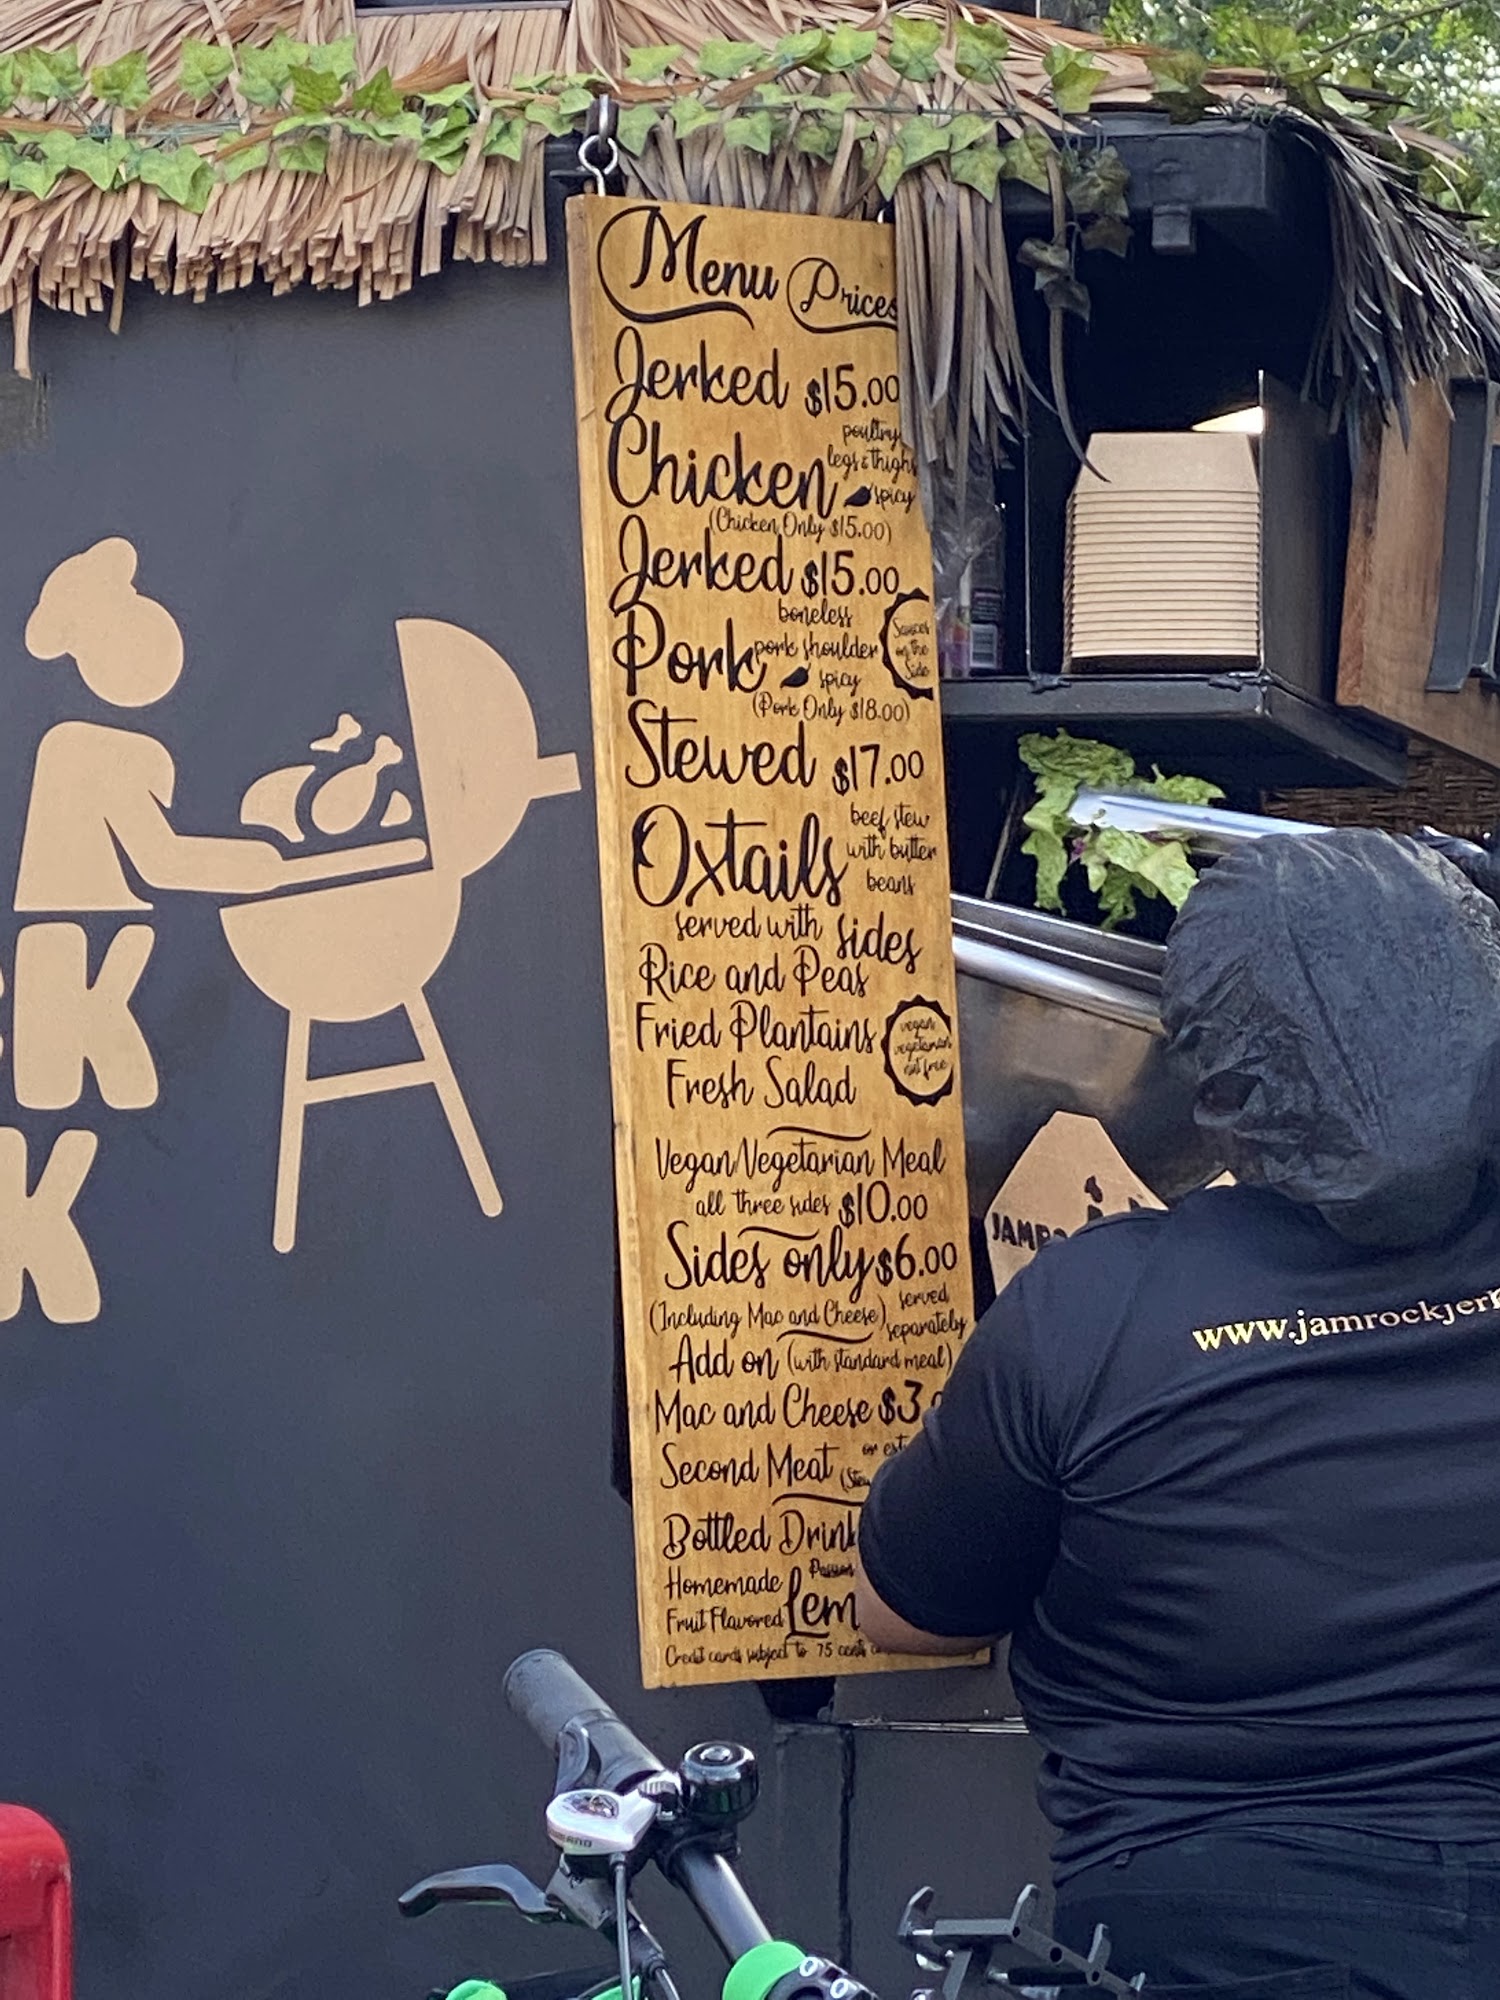 Menu Prices
Jerked $15.00
Chicken
poultry
legs & thighs
spicy
(Chicken Only $15.00)
Jerked $15.00
Pork
boneless
pork shoulder
spicy
(Pork Only $18.00)
Sauces
on the
Side
Stewed $17.00
Oxtails
beef stew
with butter
beans
served with sides
Rice and Peas
Fried Plantains
Fresh Salad
vegan
vegetarian
nut free
Vegan/Vegetarian Meal
all three sides $10.00
Sides only $6.00
(Including Mac and Cheese) served
separately
Add on (with standard meal)
Mac and Cheese $3.
Second Meat
Bottled Drink
Homemade
Fruit Flavored Lem
Credit cards subject to 75 cents
K
K
JAMRO
www.jamrockjer